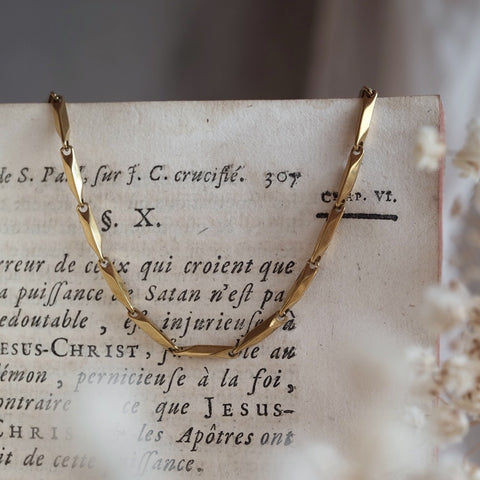 de S. Paul, ſur J. C. crucifié. 307
CHAP. VI.
§. X.
rreur de ceux qui croient que
a puiſſance de Satan n'eſt pa
edoutable , eſt injurieuſe à
ESUS-CHRIST, au
émon , pernicieuſe à la foi,
ontraire ce que JESUS-
CHRIS les Apôtres ont
it de cette iſſance.